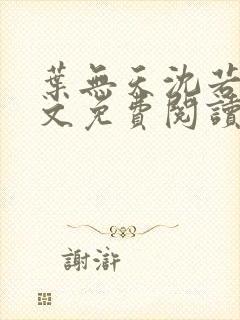 葉無天沈若
文免費閱讀
謝滸